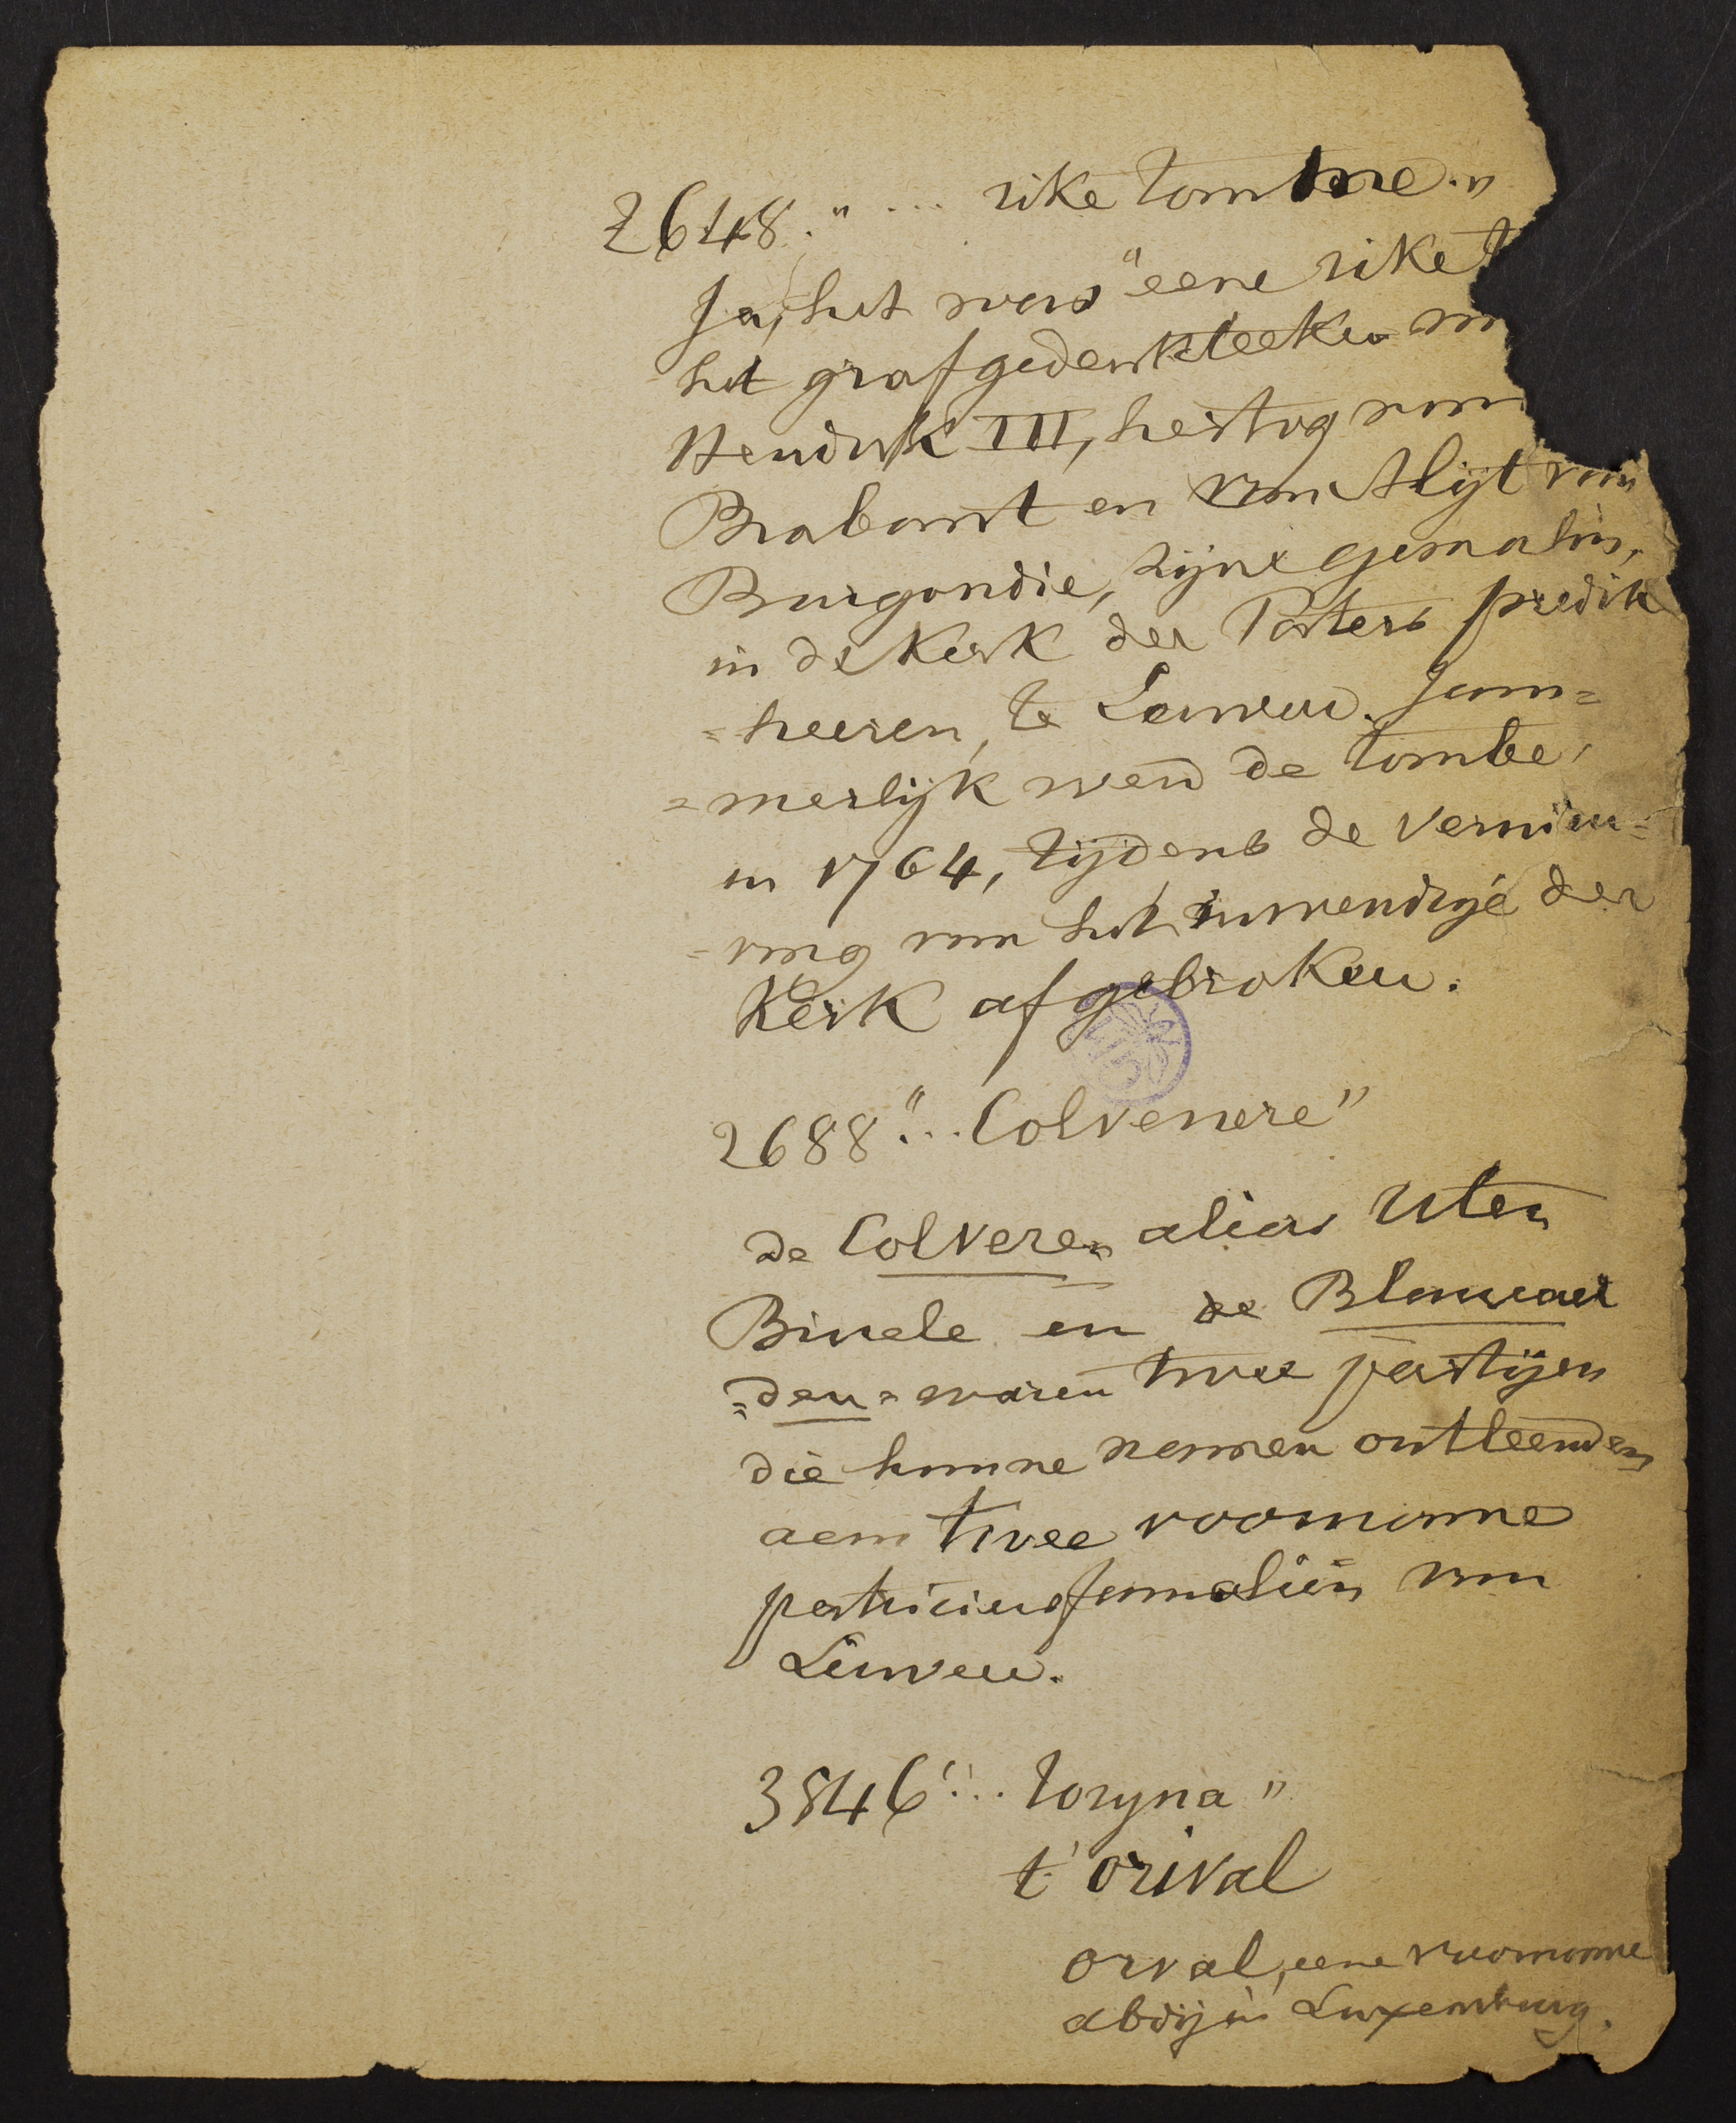 2648. " ... rike tombre."
Ja, het was "eene rike t
het grafgedenkteeken van
Hendrik III, hertog van
Brabant en van Alijt van
Burgondie, zijne gemalin,
in de Kerk der Paters predik
=heeren, te Leuven. Jam=
=merlijk werd de tombe,
in 1764, tijdens de vernieu=
=ving van het inwendige der
Kerk afgebroken.
2688 "... Colvenere"
de Colveren alias Uten
Binele en de Blanwaer
=den= waren twee partijen
die hunne namen ontleenden
aan twee voorname
patriciersfamaliën van
Leuven.
3846 "... toryna"
t' orival
orval, eene voorname
abdij in Luxemburg.